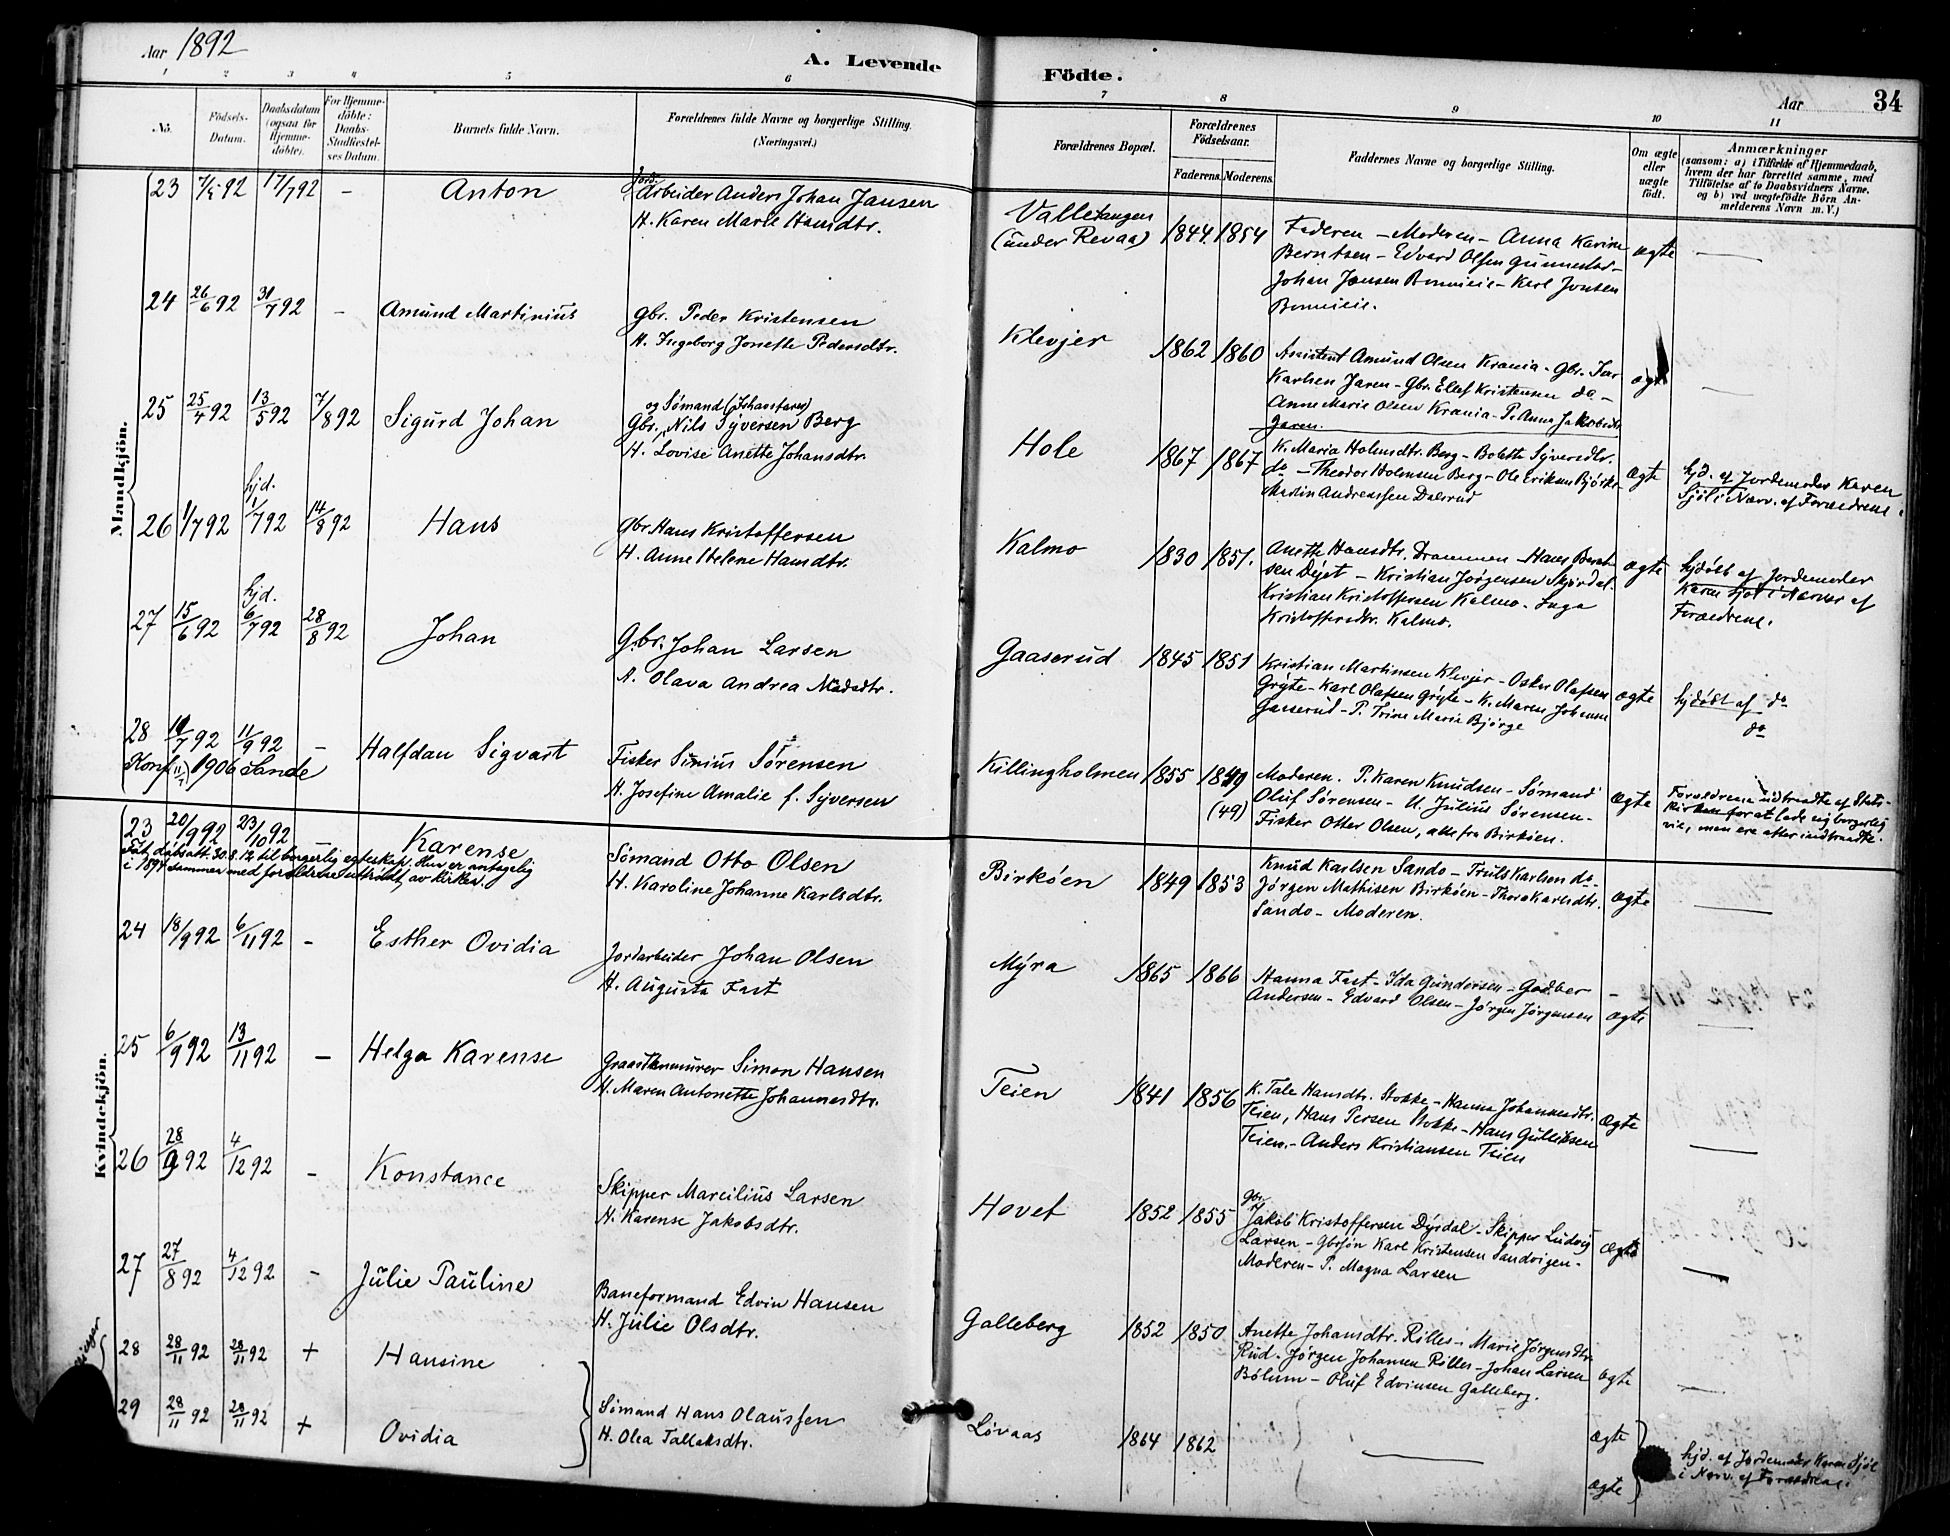 Aar 1892
A. Levende Födte.
Aar 34
1 2 3 4 5 6 7 8 9 10 11
No.
Födsels-Datum.
Daabsdatum (ogsaa for Hjemme-döbte).
For Hjemme-döbte: Daabs-Stadfæstel-ses Datum.
Barnets fulde Navn.
Forældrenes fulde Navne og borgerlige Stilling.
(Næringsvei.)
Forældrenes Bopæl.
Forældrenes Födselsaar.
Faderens. Moderens.
Faddernes Navne og borgerlige Stilling.
Om ægte eller uægte födt.
Anmærkninger
(saasom: a) i Tilfælde af Hjemmedaab,
hvem der har forrettet samme, med
Tilföielse af to Daabsvidners Navne.
og b) ved uægtefödte Börn An-
melderens Navn m. V.)
Mandkjön.
23 7/5 92 17/7 92 – Anton
Jord-Arbeider Anders Johan Jansen
H. Karen Marie Hansdtr.
Valletangen
(under Revaa) 1844. 1854
Faderen – Moderen – Anna Karine
Berntsen – Edvard Olsen Gunnestad –
Johan Jansen – Karl Jonsen
ægte —
24 26/6 92 31/7 92 – Amund Martinius
Gbr. Peder Kristensen
H. Ingeborg Jonette Pedersdtr.
Klevjer 1862 1860
Assistent Amund Olsen Krania – Gbr. Ivar
Karlsen Jaren – Gbr. Ellef Kristensen do –
Anne Marie Olsen Krania – P. Anna Jakobsdtr.
Jaren.
ægte —
25 25/4 92 13/5 92 7/8 92 Sigurd Johan
og Sømand
Gbr. Nils Syversen Berg
H. Lovise Anette Johansdtr.
Hole 1867 1867
K. Maria Holmsdtr. Berg – Bolette Syversdtr.
do – Theodor Holmsen Berg – Ole Eriksen
Martin Andreassen Dalsrud
ægte
hjd. af Jordemoder Karen
Sjöl i Nærv. af Forældrene.
26 1/7 92 hjd. 1/7 92 14/8 92 Hans
Gbr. Hans Kristoffersen
H. Anne Helene Hansdtr.
Kalmo 1830 1851.
Anette Hansdtr. Drammen – Hans Bernt-
sen – Kristian Jörgensen
Kristian Kristoffersen Kalmo – Inga
Kristoffersdtr. Kalmo.
ægte
hjdöbt af Jordemoder
Karen Sjöl i Nærvær af
Forældrene.
27 15/6 92 hjd. 6/7 92 28/8 92 Johan
Gbr. Johan Larsen
H. Olava Andrea Madsdtr.
Gaaserud 1845 1851
Kristian Martinsen Klevjer – Oskar Olafsen
Gryte – Karl Olafsen Gryte – K. Maren Johansen
Gaaserud – P. Trine Marie Bjørge
ægte
hjdöbt af do
do
28 10/7 92 11/9 92 – Halfdan Sigvart
Konf. 1906 Sande
Fisker Sørensen
H. Josefine Amalie f. Syversen
Killingholmen 1855 1849
(49)
Moderen. P. Karen Knudsen – Sømand
Oluf Sørensen – U. Julius Sørensen –
Fisker Otter Olsen, alle fra Birköen.
ægte
Forældrene udtraadte af Stats-
kirken for at lade sig borgerlig
vie, men ere atter indtraadte.
Kvindekjön.
23 20/9 92 23/10 92 Karense
Fåt dåbsatt. 30.8.12 til borgerlig egteskap. Hun er antagelig
i 1894 sammen med foreldrene utkrittet av kirken.
Sømand Otto Olsen
H. Karoline Johanne Karlsdtr.
Birköen 1849 1853
Knud Karlsen Sando – Truls Karlsen do –
Jörgen Mathisen Birköen – Thora Karlsdtr.
Sando – Moderen.
ægte —
24 18/9 92 6/11 92 – Esther Ovidia
Jordarbeider Johan Olsen
H. Augusta Fast
Myra 1865 1866
Hanna Fast – Ida Gundersen – Godber
Andersen – Edvard Olsen – Jörgen Jörgensen
ægte —
25 6/9 92 13/11 92 – Helga Karense
Graastensmurer Simon Hansen
H. Maren Antonette Johannesdtr.
Teien 1841 1856
K. Tale Hansdtr. Stokke – Hanna Johannesdtr.
Teien, Hans Persen Stokke – Hans Gulliksen
Teien. – Anders Kristiansen Teien
ægte —
26 28/9 92 4/12 92 – Konstance
Skipper Marcilius Larsen
H. Karense Jakobsdtr.
Hovet 1852 1855
Gbr. Jakob Kristoffersen Dyrdal – Skipper Ludvig
Larsen – Gbrsön Karl Kristensen Sandvigen –
Moderen – P. Magna Larsen
ægte —
27 27/8 92 4/12 92 – Julie Pauline
Baneformand Edvin Hansen
H. Julie Olsdtr.
Galleberg 1852 1850
Anette Johansdtr. Rilles – Marie Jörgensdtr.
Rud – Jörgen Johansen Rilles – Johan Larsen
Bölum – Oluf Edvinsen Galleberg.
ægte —
28 28/11 92 28/11 92 + Hansine
29 28/11 92 28/11 92 + Ovidia
Sømand Hans Olaussen
H. Olea Tallaksdtr.
Lövaas 1864 1862 —
ægte
ægte
hjd. af Jordemoder Karen Sjöl
i Nærv. af Forældrene.